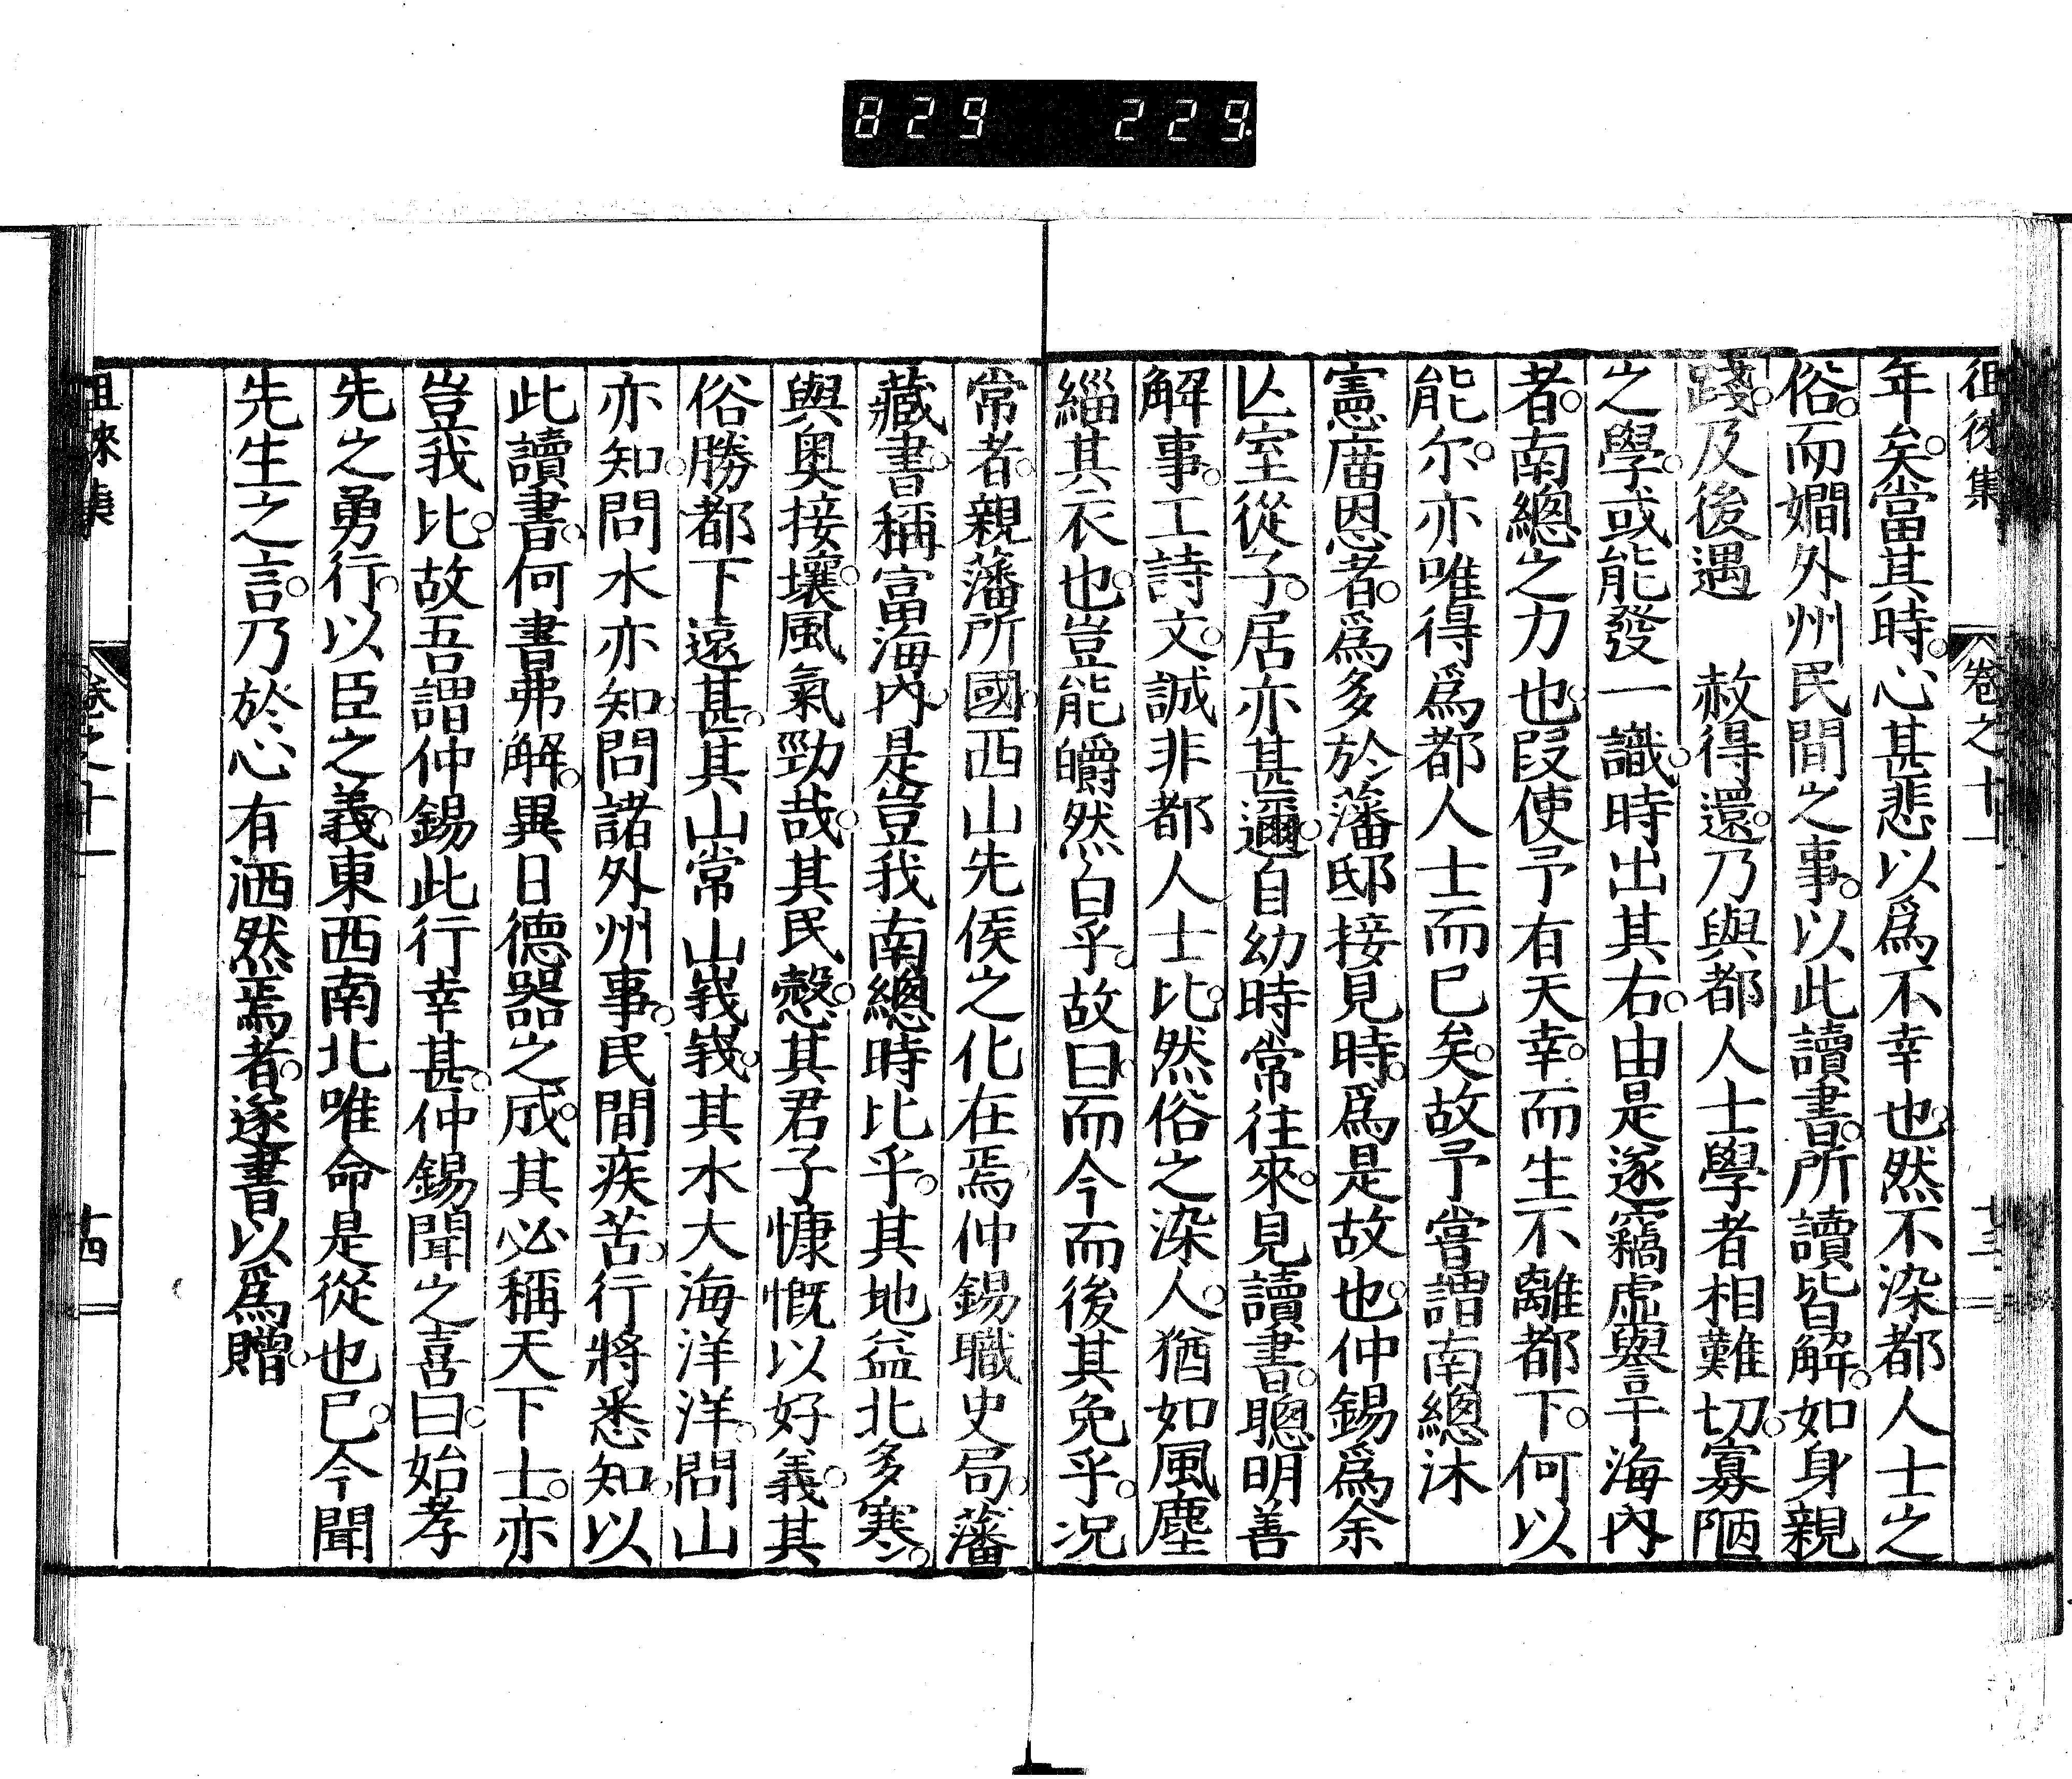 829 229.
徂徠集 卷之十一 十三
年矣。當其時。心甚悲以爲不幸也。然不染都人士之
俗。而嫺外州民間之事。以此讀書。所讀皆解。如身親
踐。及後遇 赦得還。乃與都人士學者相難切。寡陋
之學。或能發一識。時出其右。由是遂竊虛譽乎海內
者。南總之力也。叚使予有天幸。而生不離都下。何以
能尔。亦唯得爲都人士而已矣。故予嘗謂南總沐
憲廟恩者。爲多於藩邸接見時。爲是故也。仲錫爲余
亾室從子。居亦甚邇。自幼時常往來。見讀書。聰明善
解事。工詩文。誠非都人士比。然俗之染人。猶如風塵
緇其衣也。豈能皭然白乎。故曰。而今而後其免乎。况
常者。親藩所國。西山先侯之化在焉。仲錫職史局。藩
藏書。稱富海內。是豈我南總時比乎。其地益北多寒。
與奥接壤。風氣勁哉。其民愨。其君子慷慨以好義。其
俗勝都下遠甚。其山常山峩峩。其水大海洋洋。問山
亦知。問水亦知。問諸外州事。民間疾苦。行將悉知。以
此讀書。何書弗解。異日德器之成。其必稱天下士。亦
豈我比。故吾謂仲錫此行幸甚。仲錫聞之喜曰。始孝
先之勇行。以臣之義。東西南北唯命是從也已。今聞
先生之言。乃於心有洒然焉者。遂書以爲贈。
徂徠集 卷之十一 十四